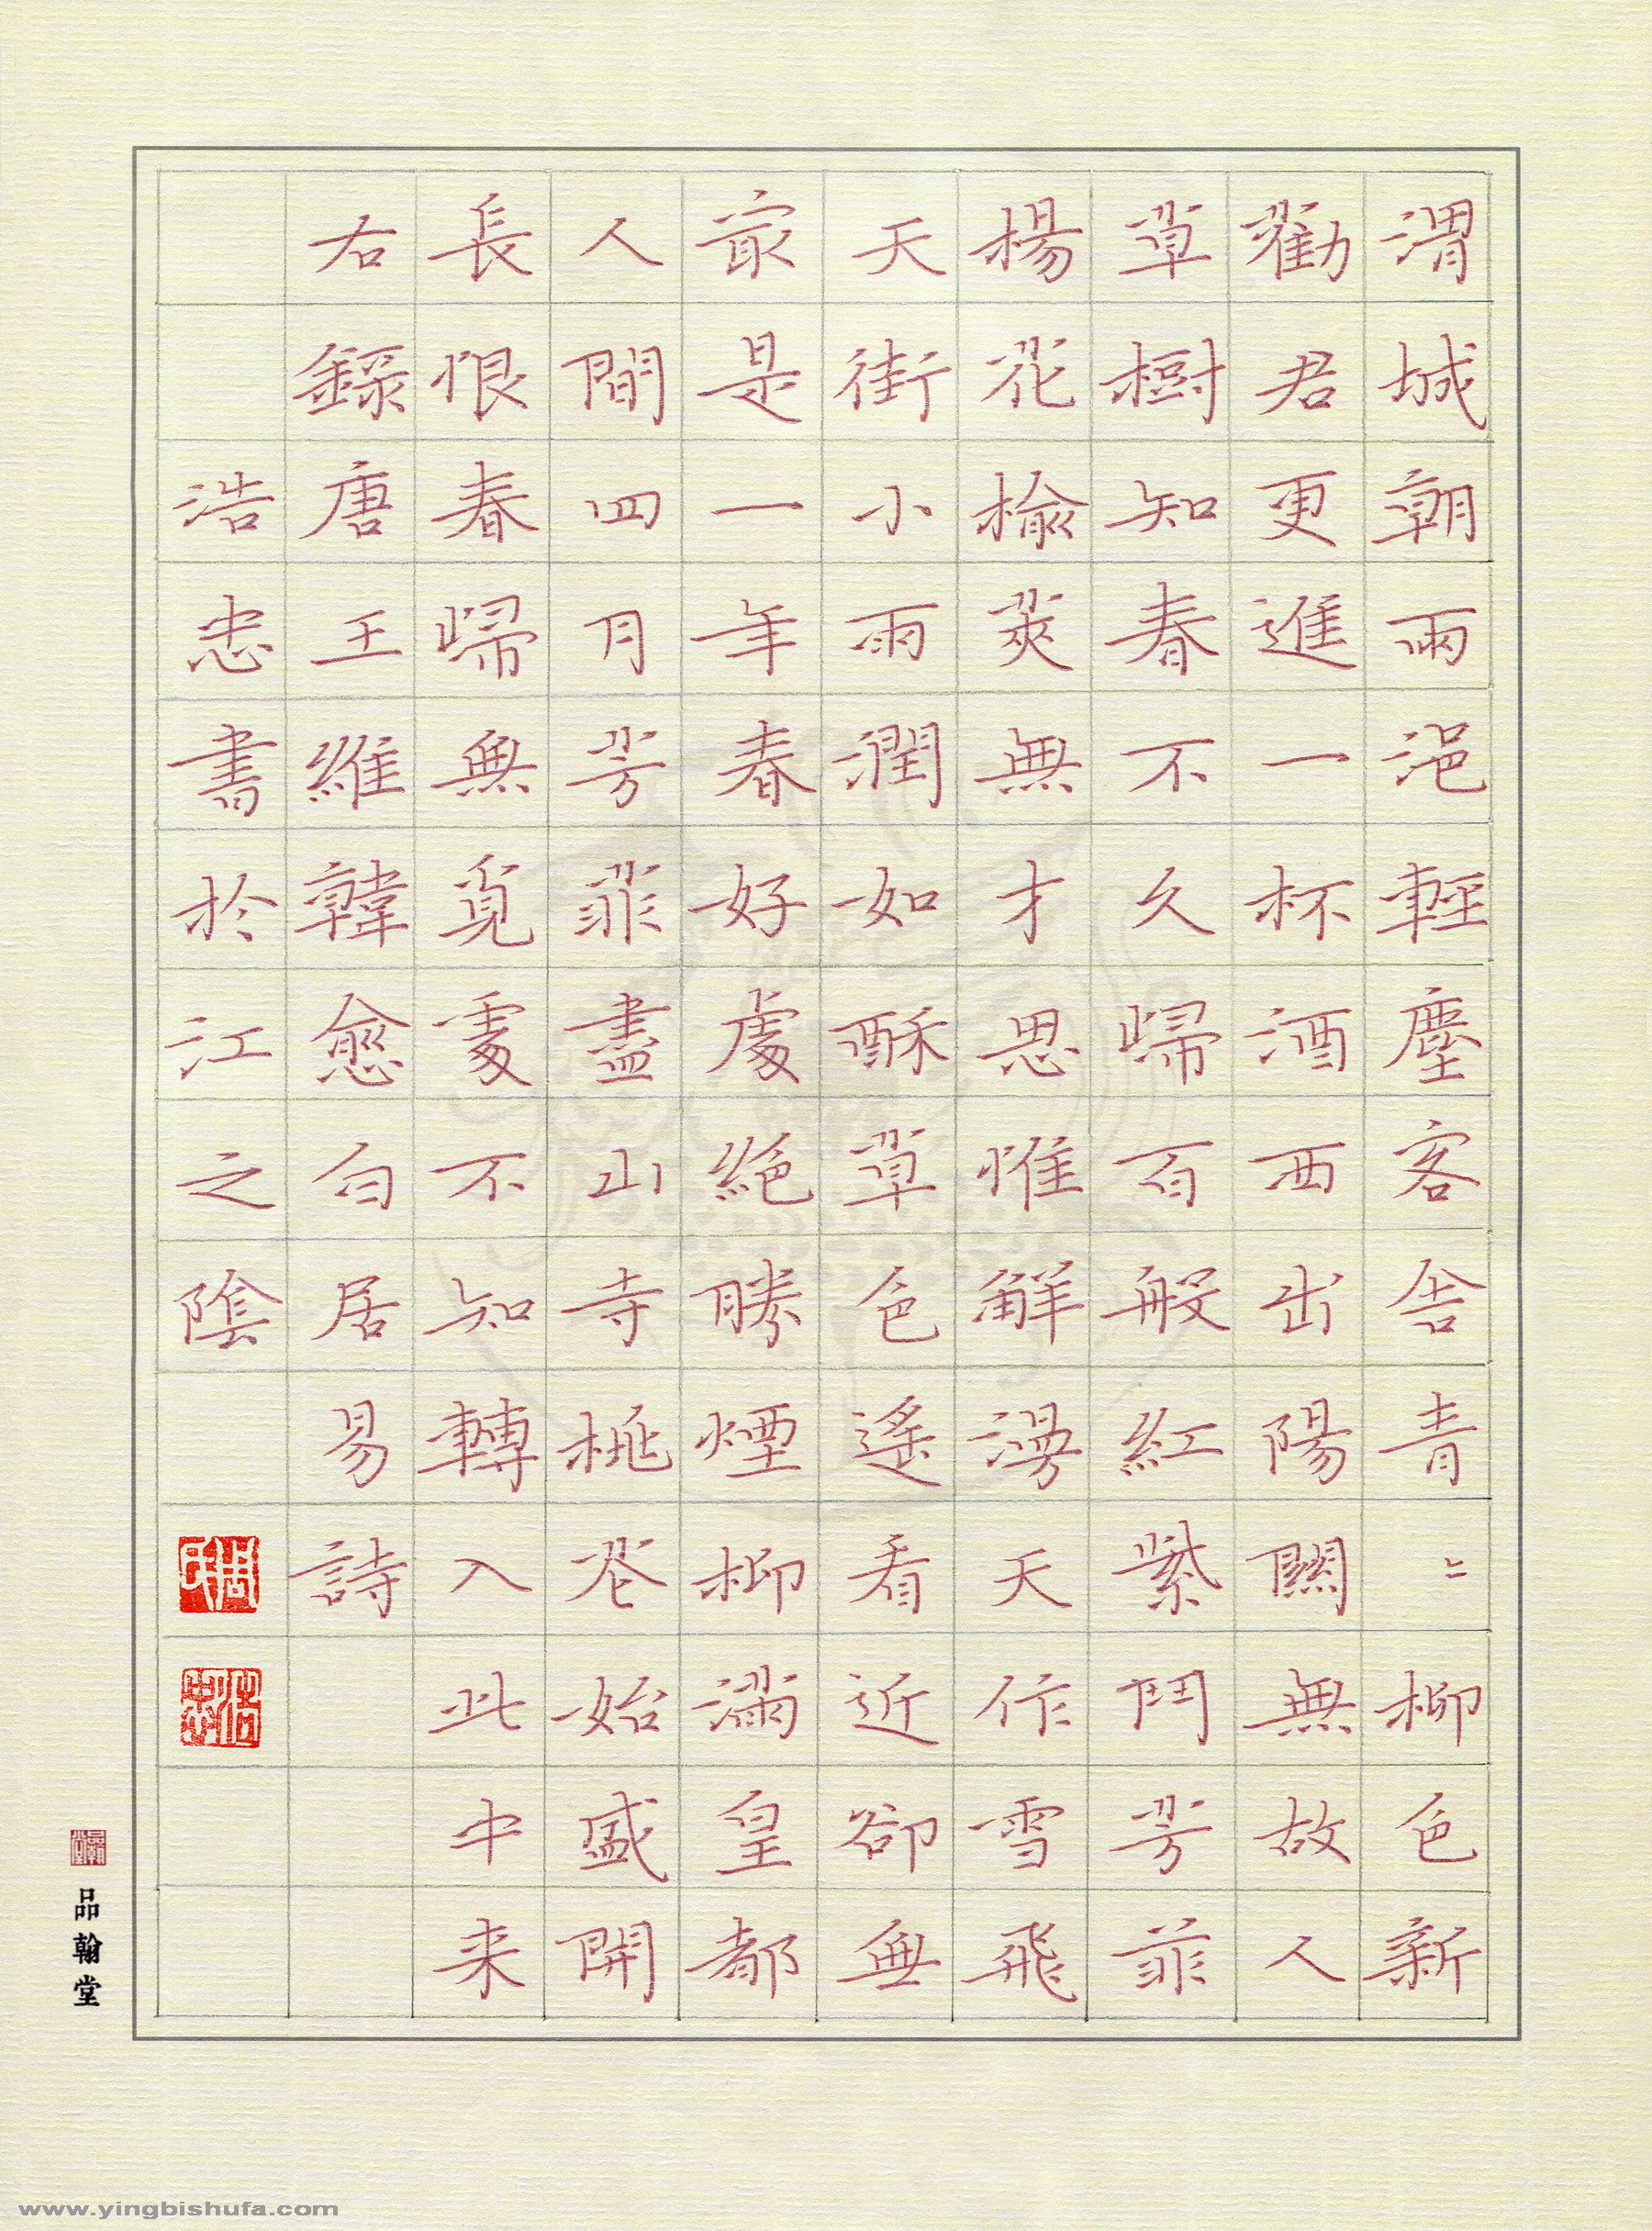 渭城朝雨浥輕塵客舍青〻柳色新
勸君更進一杯酒西出陽關無故人
草樹知春不久歸百般紅紫鬥芳菲
楊花榆莢無才思惟解漫天作雪飛
天街小雨潤如酥草色遙看近卻無
最是一年春好處絕勝煙柳滿皇都
人間四月芳菲盡山寺桃花始盛開
長恨春歸無覓處不知轉入此中来
右錄唐王維韓愈白居易詩
浩忠書於江之陰
周氏
浩忠
品翰堂
www.yingbishufa.com